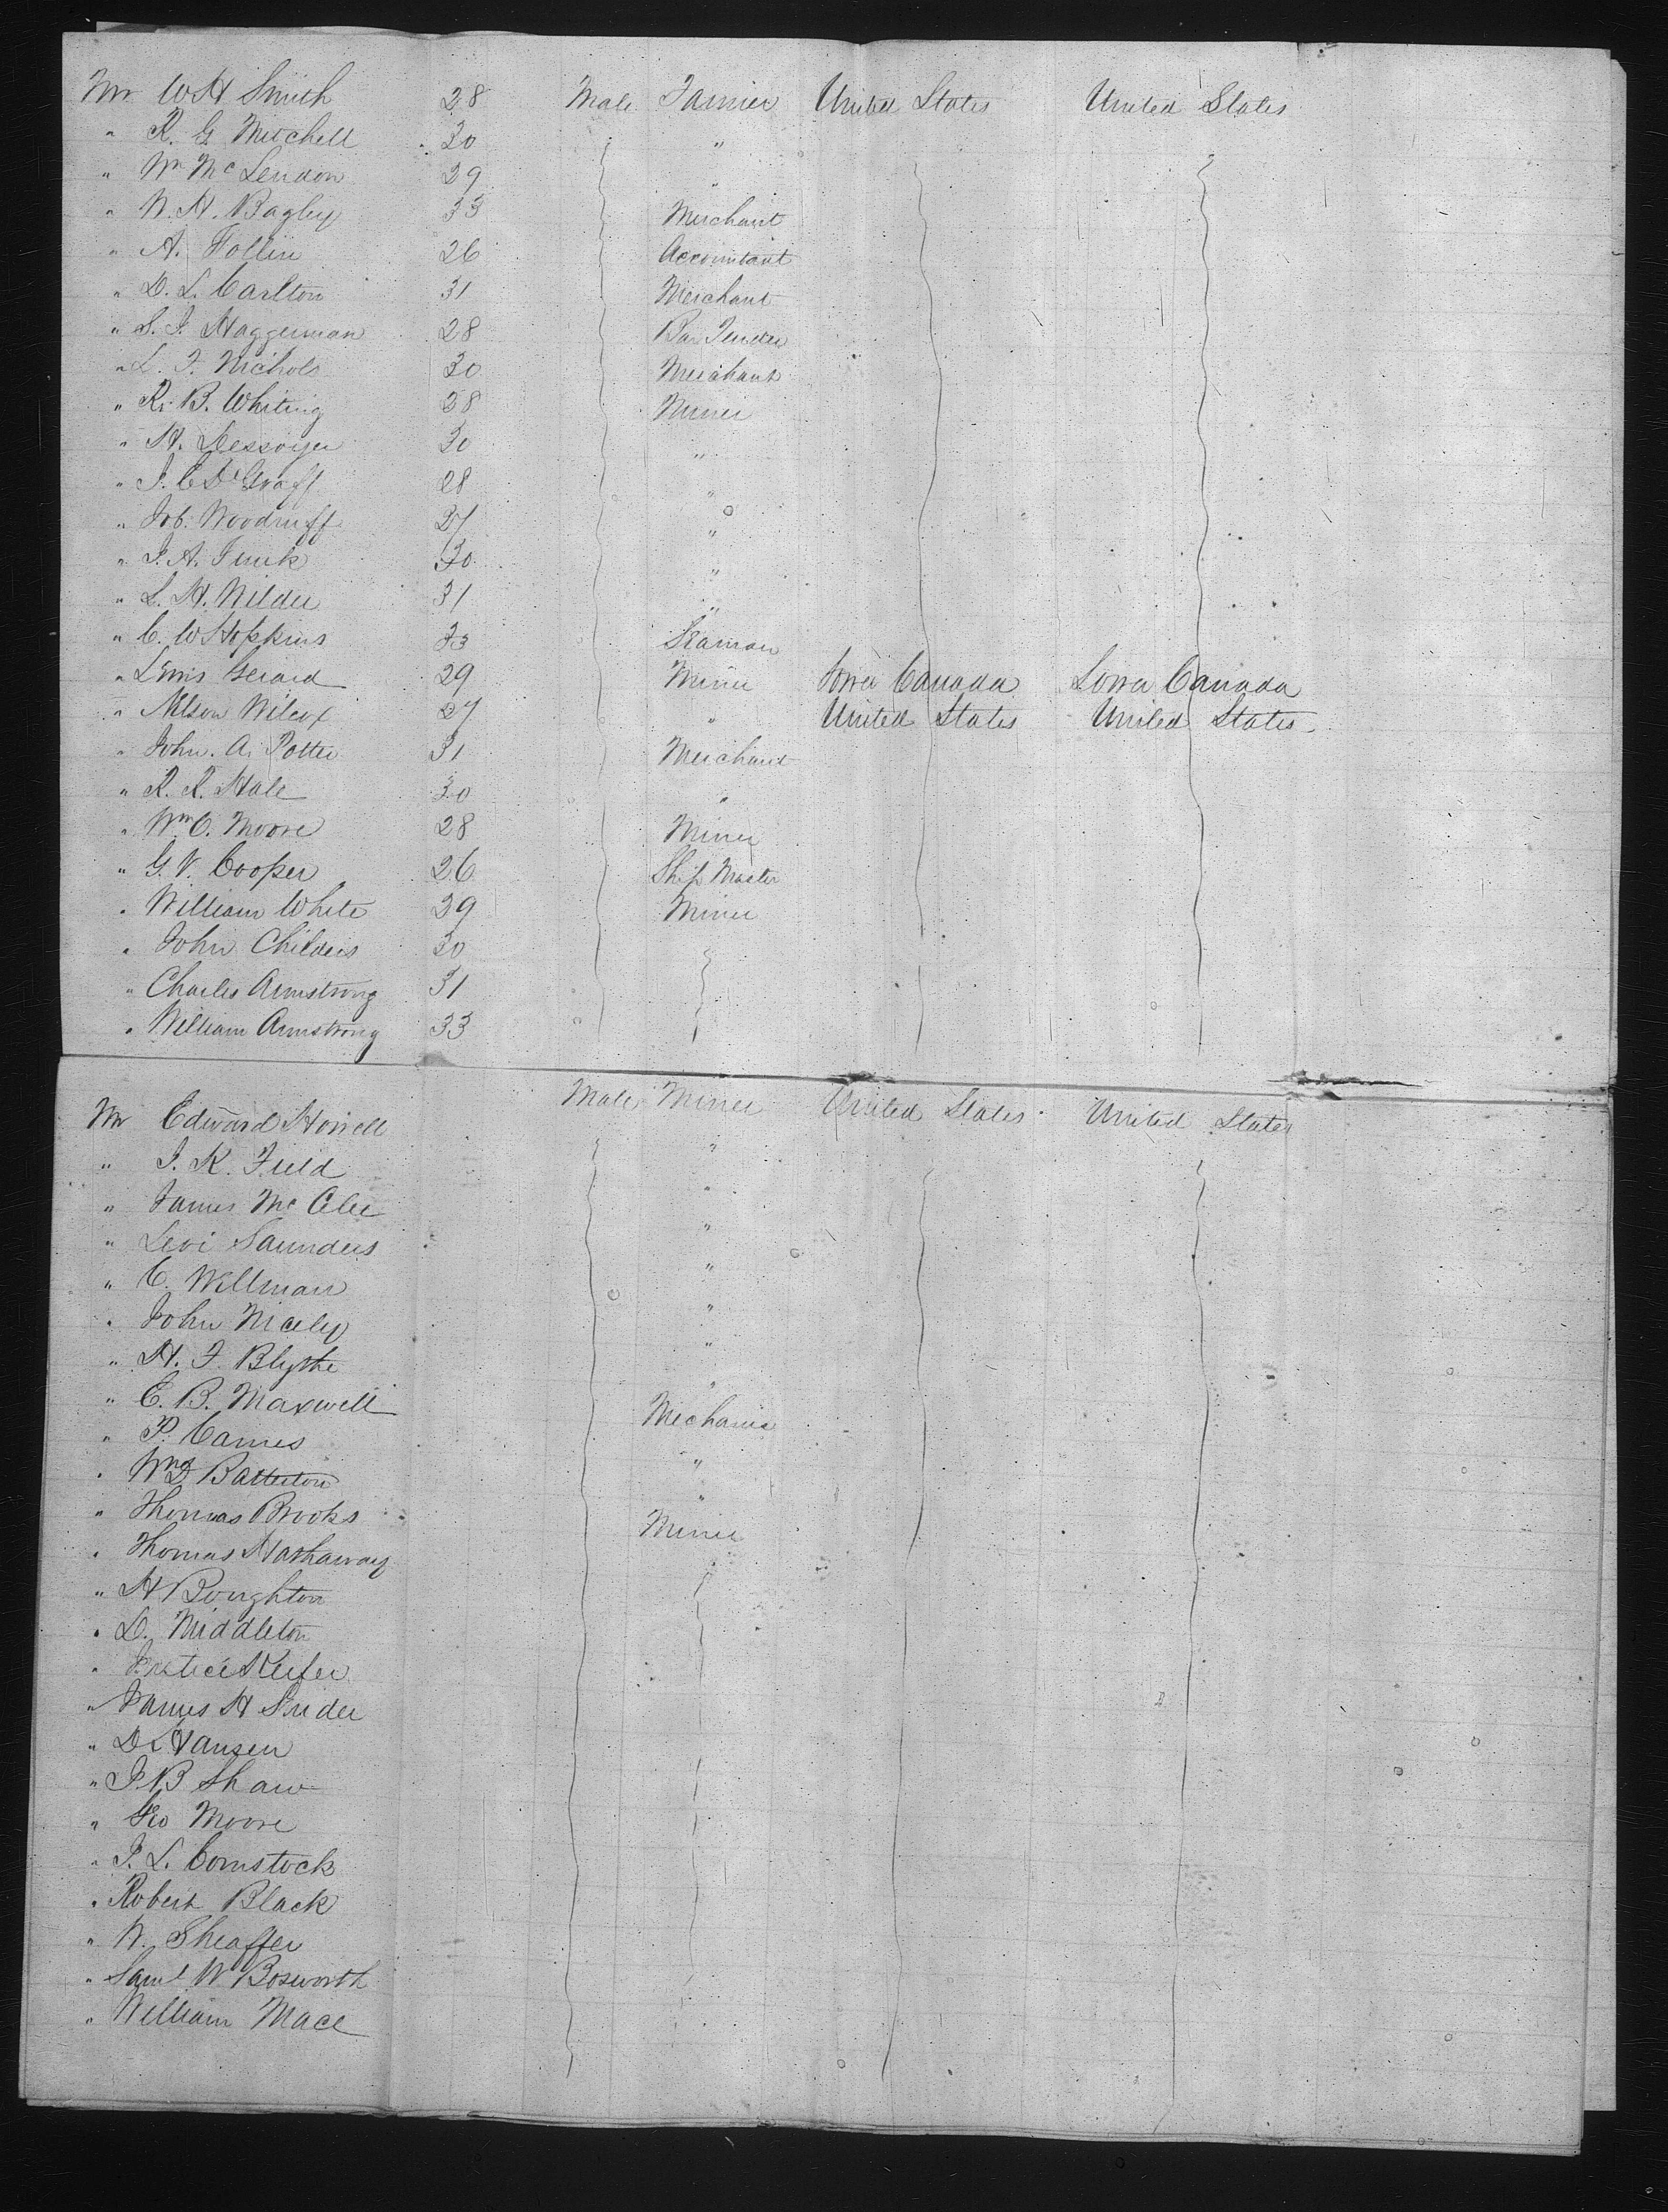 Mr W H Smith 28 Male Farmer United States United States
" R. G. Mitchell 30 "
" Wm McLendon 29 "
" W. H. Bagley 33 Merchant
" A. Follin 26 Accountant
" D. L. Carlton 31 Merchant
" S. J. Haggerman 28 Bar Tender
" L. F. Nichols 30 Merchant
" R. B. Whiting 28 Miner
" H. 30 "
" J. C DeGraff 28 "
" Job. Woodruff 27 "
" J. A. Funk 30 "
" L. H. Wilder 31 "
" C. W Hopkins 33 Seaman
" Lewis Gerard 29 Miner Lower Canada Lower Canada
" Nelson Wilcox 27 " United States United States
" John. A. Potter 31 Merchant
" R. R. Hale 30 "
" Wm C. Moore 28 Miner
" G. V. Cooper 26 Ship Master
" William White 29 Miner
" John Childers 30
" Charles Armstrong 31
" William Armstrong 33
Mr Edward Howell Male Miner United States United States
" J. K. Field "
" James Mc "
" Levi Saunders "
" C. Wellman "
" John Nicely "
" H. F. Blythe "
" E. B. Maxwell "
" P. Carnes Mechanic
" Wm Batterton "
" Thomas Brooks "
" Thomas Hathaway Miner
" H Boughton
" D. Middleton
" Keifer
" James H Snider
" Hansen
" J. B Shaw
" Geo Moore
" J. L. Comstock
" Robert Black
" W. Sheaffer
" Saml W Bosworth
" William Mace